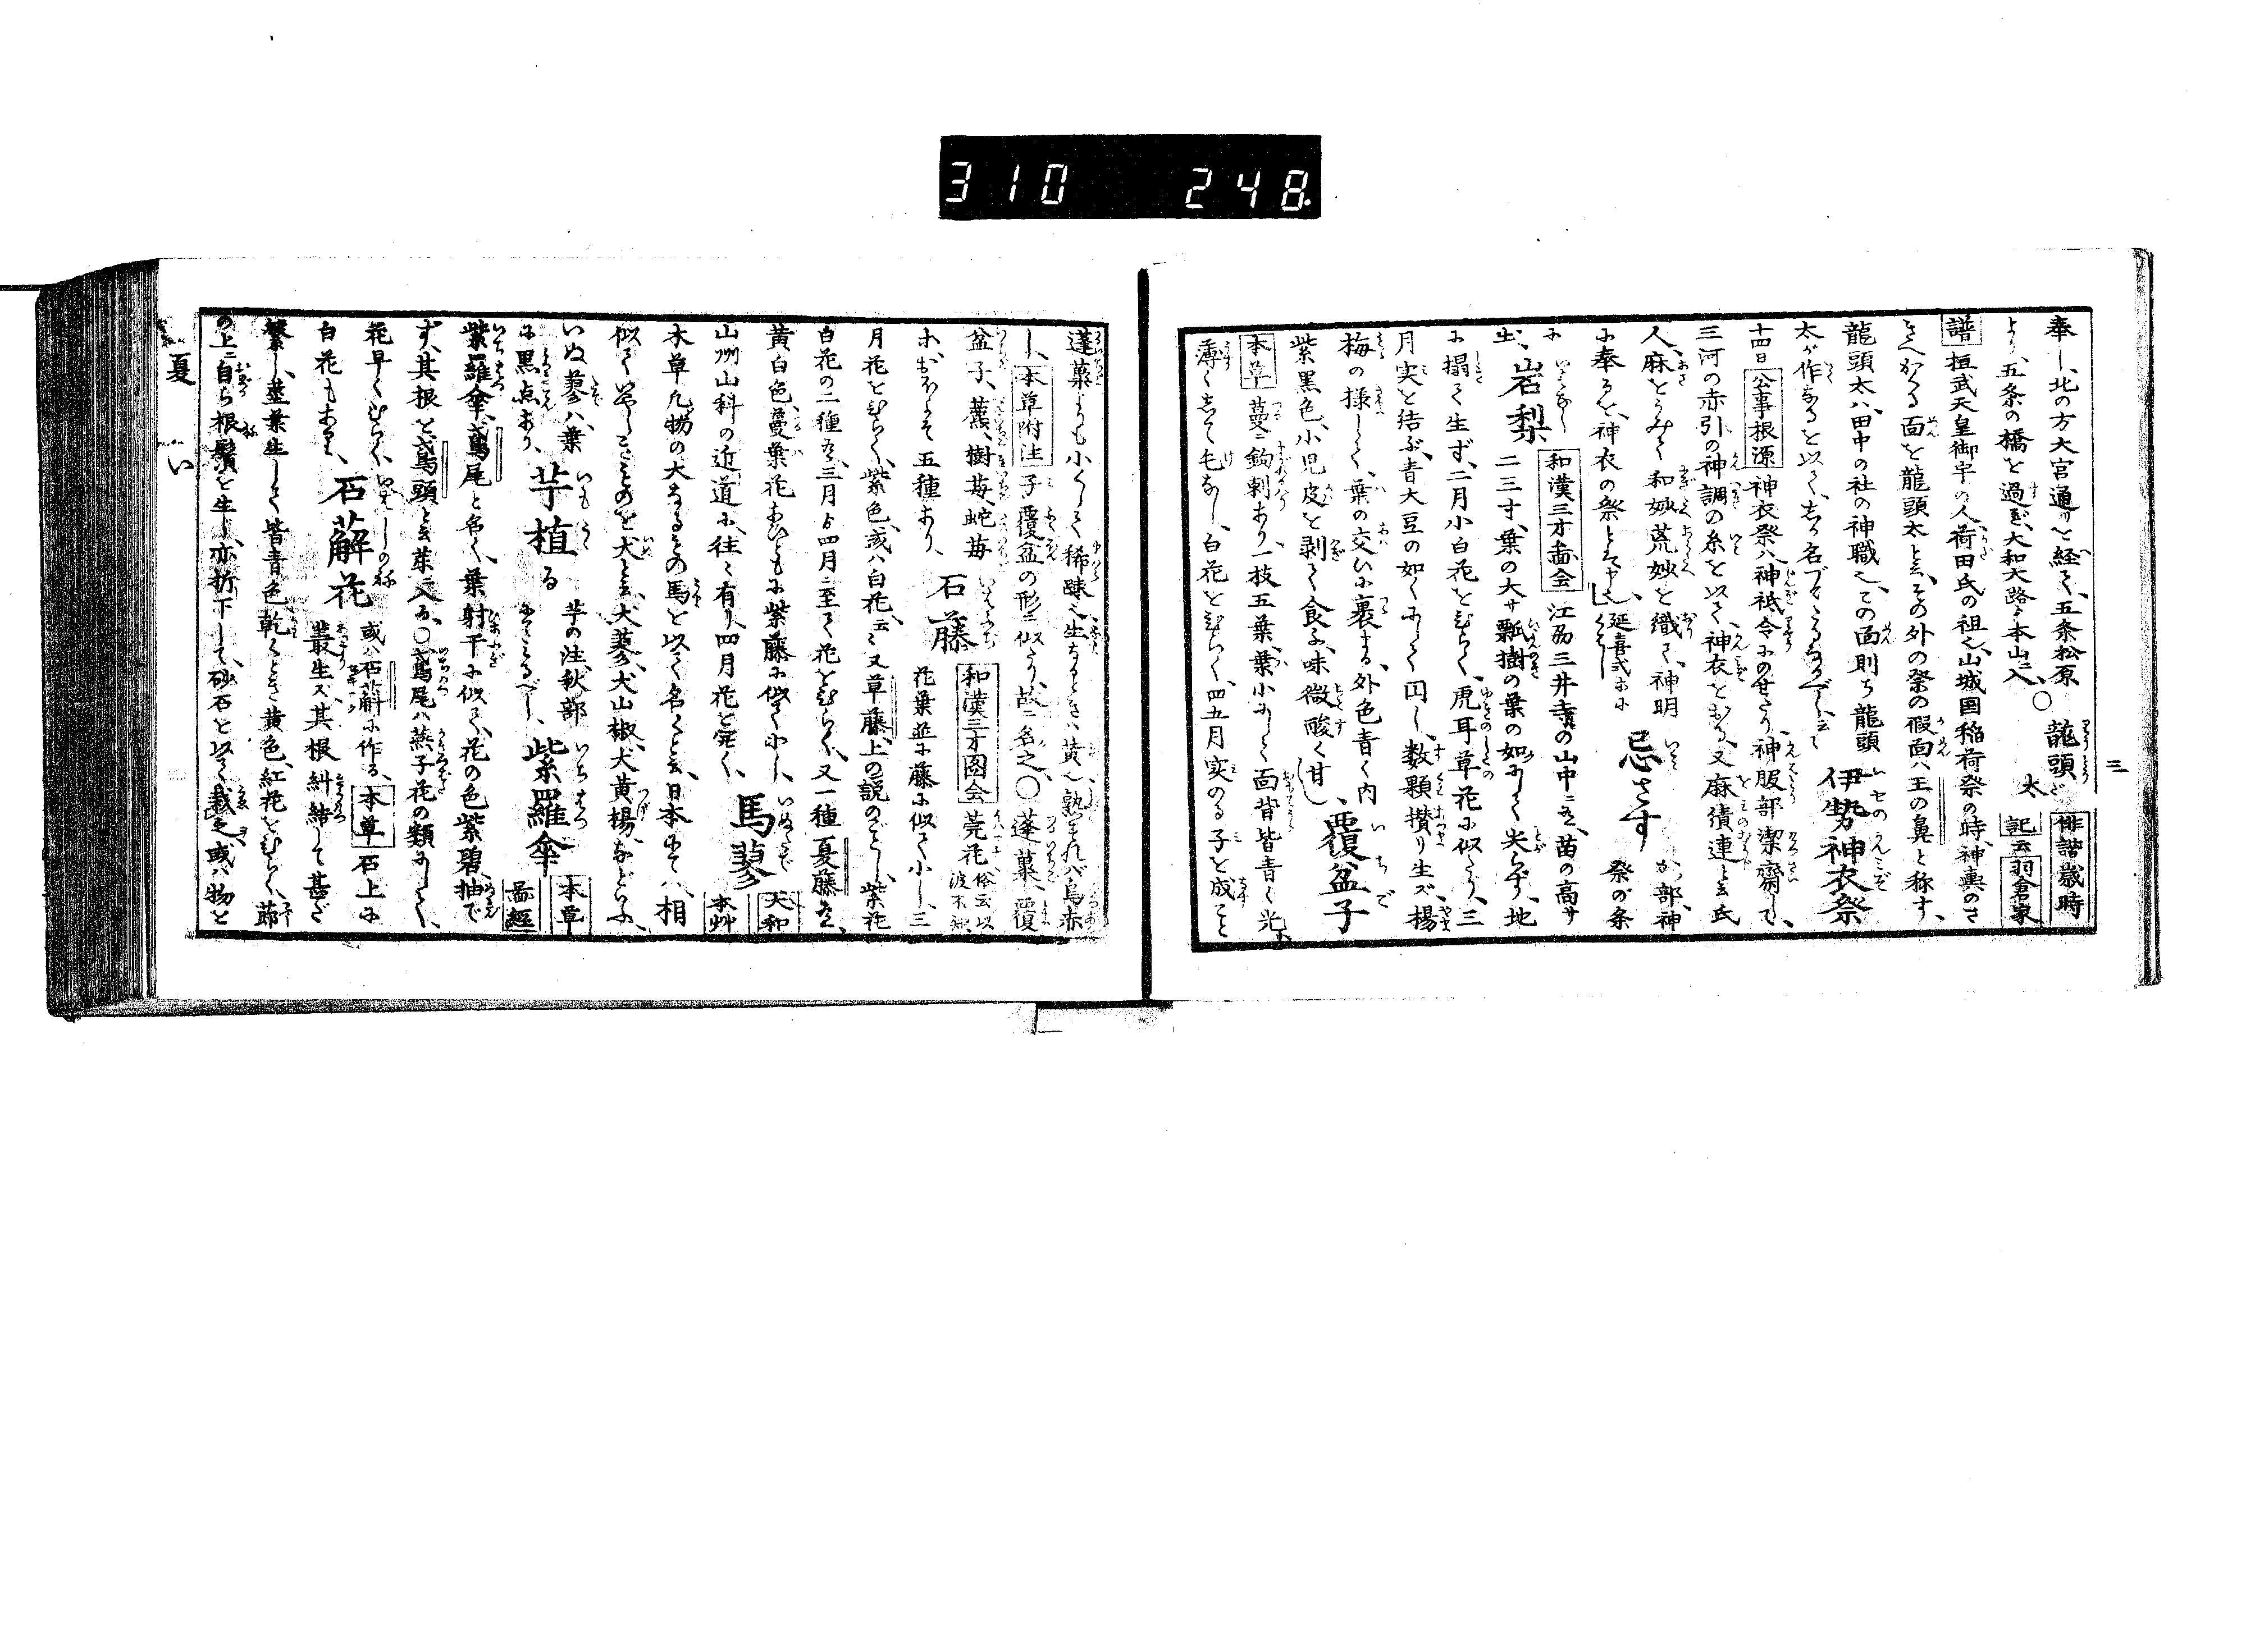 310 248.
三
奉し、北の方大宮通りを経て、五条松原
より、五条の橋を過ぎ、大和大路より本山ニ入、〇龍頭太 俳諧歳時記云羽倉家
譜 桓武天皇御宇の人荷田氏の祖也、山城国稲荷祭の時、神輿のさ
きへかくる面を龍頭太と云、その外の祭の假面ハ王の鼻と称す、
龍頭太ハ、田中の社の神職也、この面則ち龍頭
太が作なるを以て、しか名づくるなるべし、云々 伊勢神衣祭
十四日 公事根源 神衣祭ハ神祇令にのせたり、神服部潔齋して、
三河の赤引の神調の糸を以て、神衣をおる、又麻績連と云氏
人、麻をうみて和妙荒妙を織て、神明
に奉るを、神衣の祭とは申也、延喜式に 忌さす かノ部、神祭の条
に 岩梨 和漢三才圖会 江州三井寺の山中ニ在、苗の高サ
二三寸、葉の大サ瓢樹の葉の如にして尖らず、地
に搨て生ず、二月小白花をひらく、虎耳草花に似たり、三
月実を結ぶ、青大豆の如くにして円し、数顆攅り生ズ、楊
梅の様して、葉の交ひに裹まる、外色青く内
紫黒色、小児皮を剥て食ふ、味微酸く甘し、 覆盆子
本草 蔓ニ鉤刺あり、一枝五葉、葉小にして面背皆青く光
薄くして毛なし、白花をひらく、四五月実のる子を成こと
蓬蔂よりも小くして稀踈也、生なるときハ黄也、熟すれバ烏赤
し、本草附注 子覆盆の形ニ似たり、故ニ名之、〇蓬蔂、覆
盆子、藨、樹苺、蛇苺
等、おほよそ五種あり、 石藤 和漢三才図会 莞花 俗云以波不知 花葉並に藤に似て小し、三
月花をひらく、紫色、或ハ白花、云々又草藤、上の説のごとし、紫花
白花の二種在、三月より四月ニ至て花をひらく、又一種夏藤在、
黄白色、蔓葉花おのともに紫藤に似て小し、
山州山科の近道に、往々有リ、四月花を開く、 馬蓼 大和本艸
本草凡物の大なるその馬を以て名くと云、日本にては、相
似て非しきものを犬と云、犬蓼、犬山椒、犬黄楊、などといふ、
いぬ蓼ハ、葉
に黒点あり、 芋植る 芋の注、秋部に出るべし、 紫羅傘 本草啚經
紫羅傘、鳶尾と名く、葉射干に似て、花の色紫碧、抽で
ず、其根を鳶頭と云、茱ニ入ル、〇鳶尾ハ燕子花の類にして、
花早くひらく、
白花もあり、 石斛花 或ハ石蘚に作る、本草 石上に
叢生ス、其根糾結して甚だ
繁し、莖葉生して皆青色、乾くとき黄色、紅花をひらく、節
の上ニ自ら根鬚を生ず、亦折下して、砂石を以て栽之、或ハ物を
夏 い